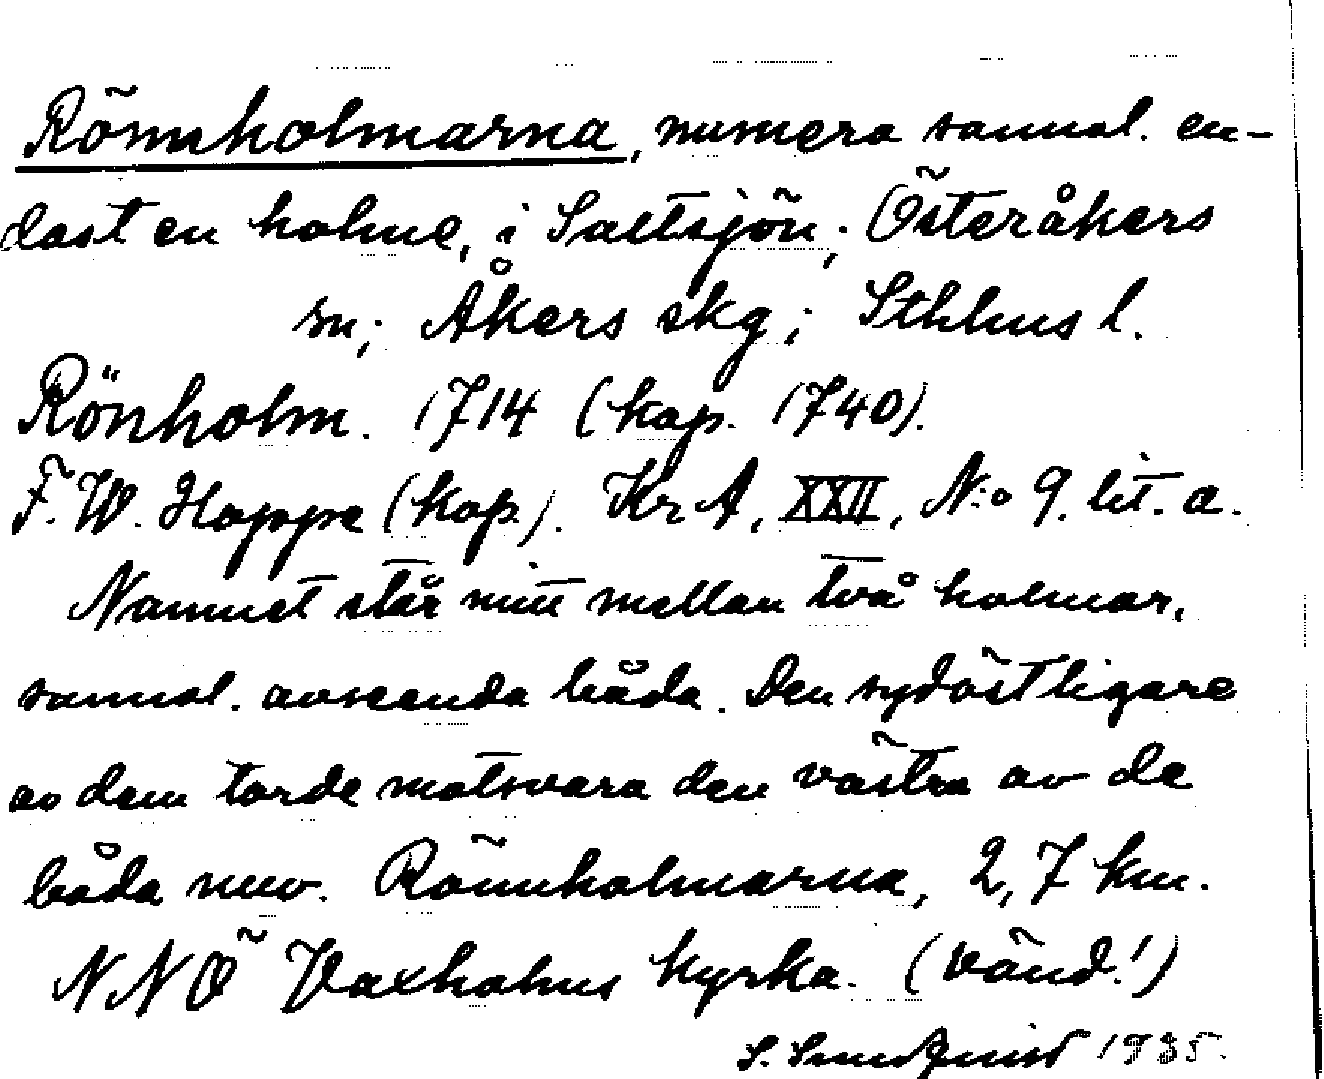 Rönnholmarna, numera sannol. en-
dast en holme, i Saltsjön; Österåkers
sn; Åkers skg; Sthlms l.
Rönholm. 1714 (kop. 1740).
F. W. Hoppe (kop.). KrA, XXII, N:o 9. lit. a.
Namnet står mitt mellan två holmar,
sannol. avseende båda. Den sydöstligare
av dem torde motsvara den västra av de
båda nuv. Rönnholmarna, 2,7 km.
NNÖ Vaxholms kyrka. (Vänd!)
S. Sundquist 1935.